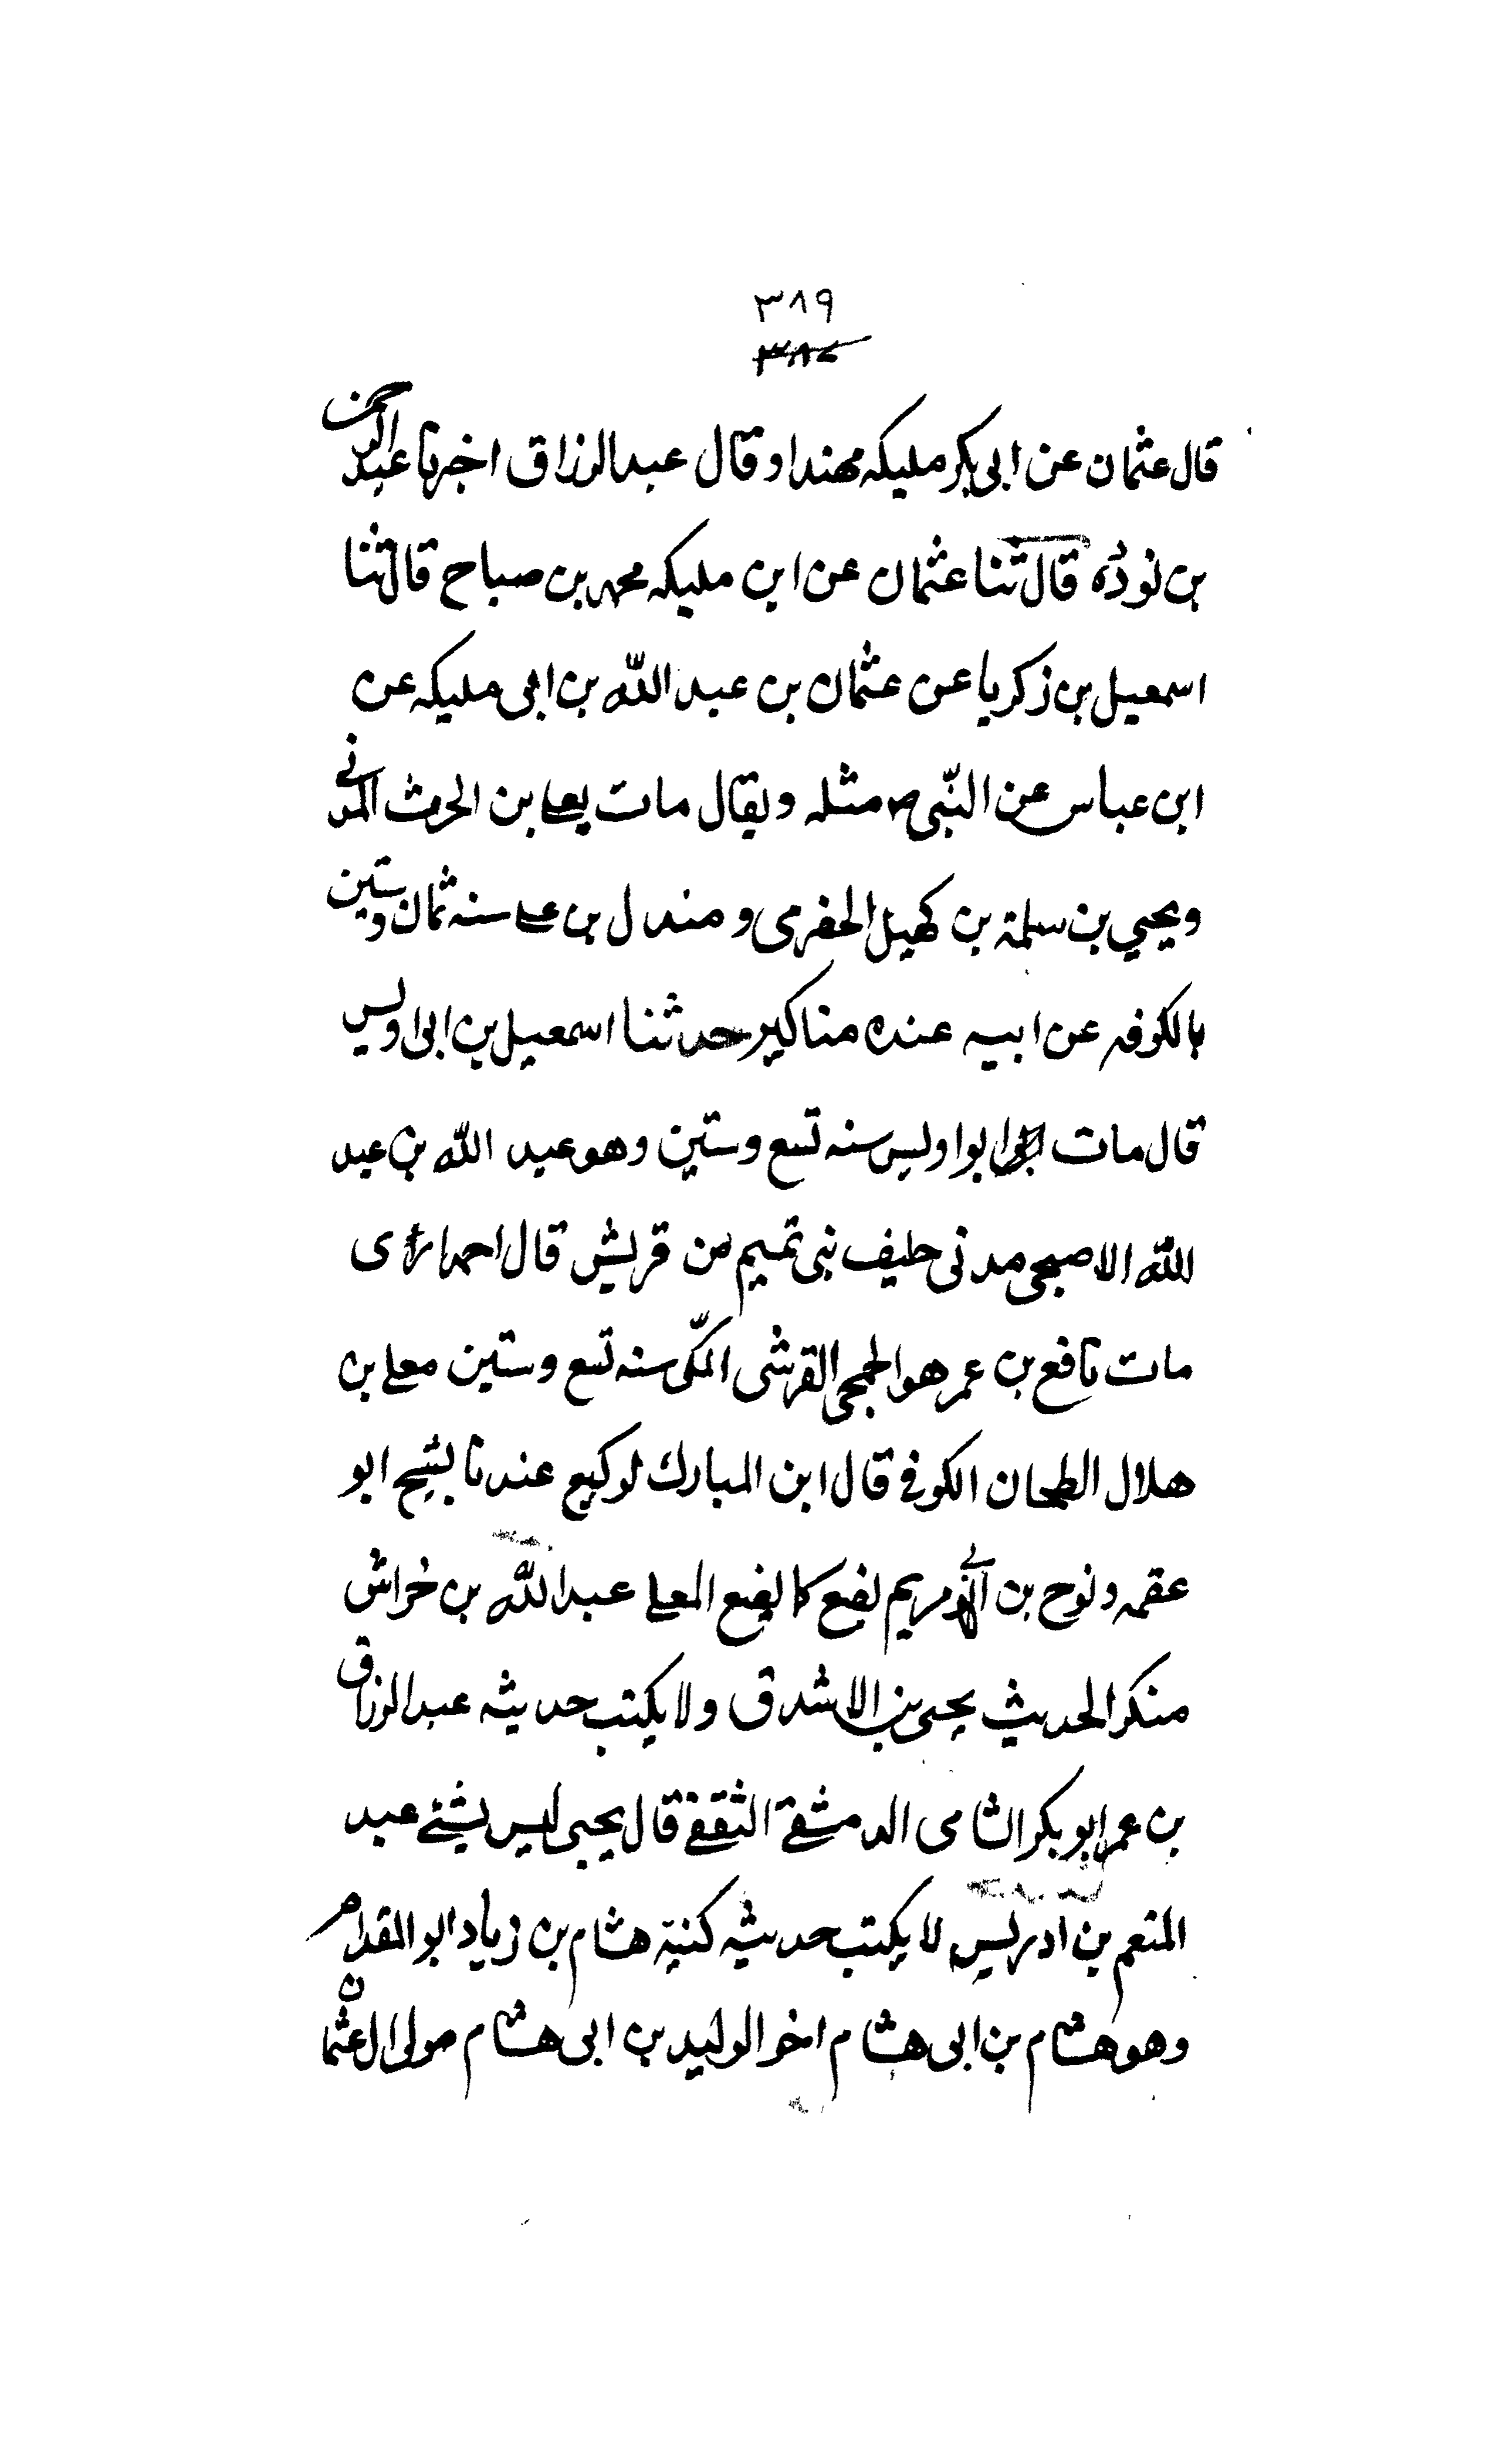 ٣٨٩
٣٨٧
قال عثمان عن ابى بكر مليكه مهندا وقال عبد الرزاق اخبرنا عبد الرحمن
بن نوذه قال ثنا عثمان عن ابن مليكه محمد بن صباح قال ثنا
اسمعيل بن زكريا عن عثمان بن عبد الله بن ابى مليكه عن
ابن عباس عن النّبى ص مثله ويقال مات يعلے بن الحرث المدنے
ويحيي بن سلمة بن كهيل الحضرمى و مندل بن علے سنه ثمان وستين
بالكوفه عن ابيه عنده مناكير حدثنا اسمعيل بن ابى اويس
قال مات ابو اويس سنه تسع وستين وهو عبد الله بن عبد
الله الاصبحى مدنى حليف بنى تميم من قريش قال احمد ارى
مات نافع بن عمر هو الجمحى القرشى المكّى سنه تسع وستين معلے بن
هلال الطحان الكوفے قال ابن المبارك لوكيع عندنا بشيخ ابو
عقمه ونوح بن ابى مريم يضع كا يضع المعلے عبد الله بن خراش
منكر الحديث يحيى بن الاشدق ولا يكتب حديثه عبد الرزاق
بن عمر ابو بكر الشامى الدمشقے الثقفے قال يحيى ليس بشئے عبد
المنعم بن ادريس لا يكتب حديثه كنية هشام بن زياد ابو المقدام
وهو هشام بن ابى هشام اخو الوليد بن ابى هشام مولى ال عثمان